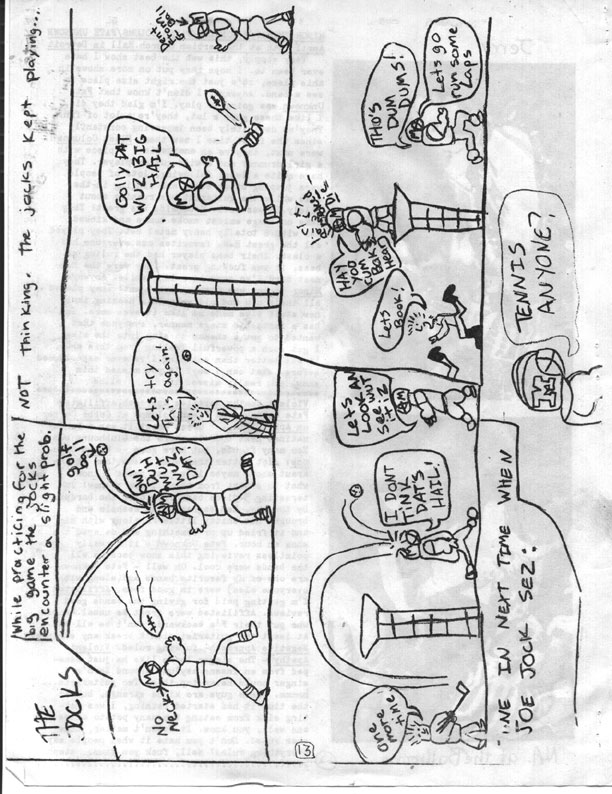 THE
JOCKS
While practicing for the
big game the jocks
encounter a slight prob.
NO
NECK
golf
ball
OW!
DUH
WUT
WUZ
DAT?
NOT thinking. the jocks kept playing...
Lets try
This again!
Golly DAT
WUZ BIG
HAIL
One
more
time!
I DONT
TINK
DATS
HAIL!
LETS
LOOK AN
SEE WUT
it iz
Lets
Book!
HAY
YOU
CUM
BAK
HEER
THO'S
DUM
DUMS!
Lets go
run some
Laps
NE IN NEXT TIME WHEN
JOE JOCK SEZ:
TENNIS
ANYONE?
13